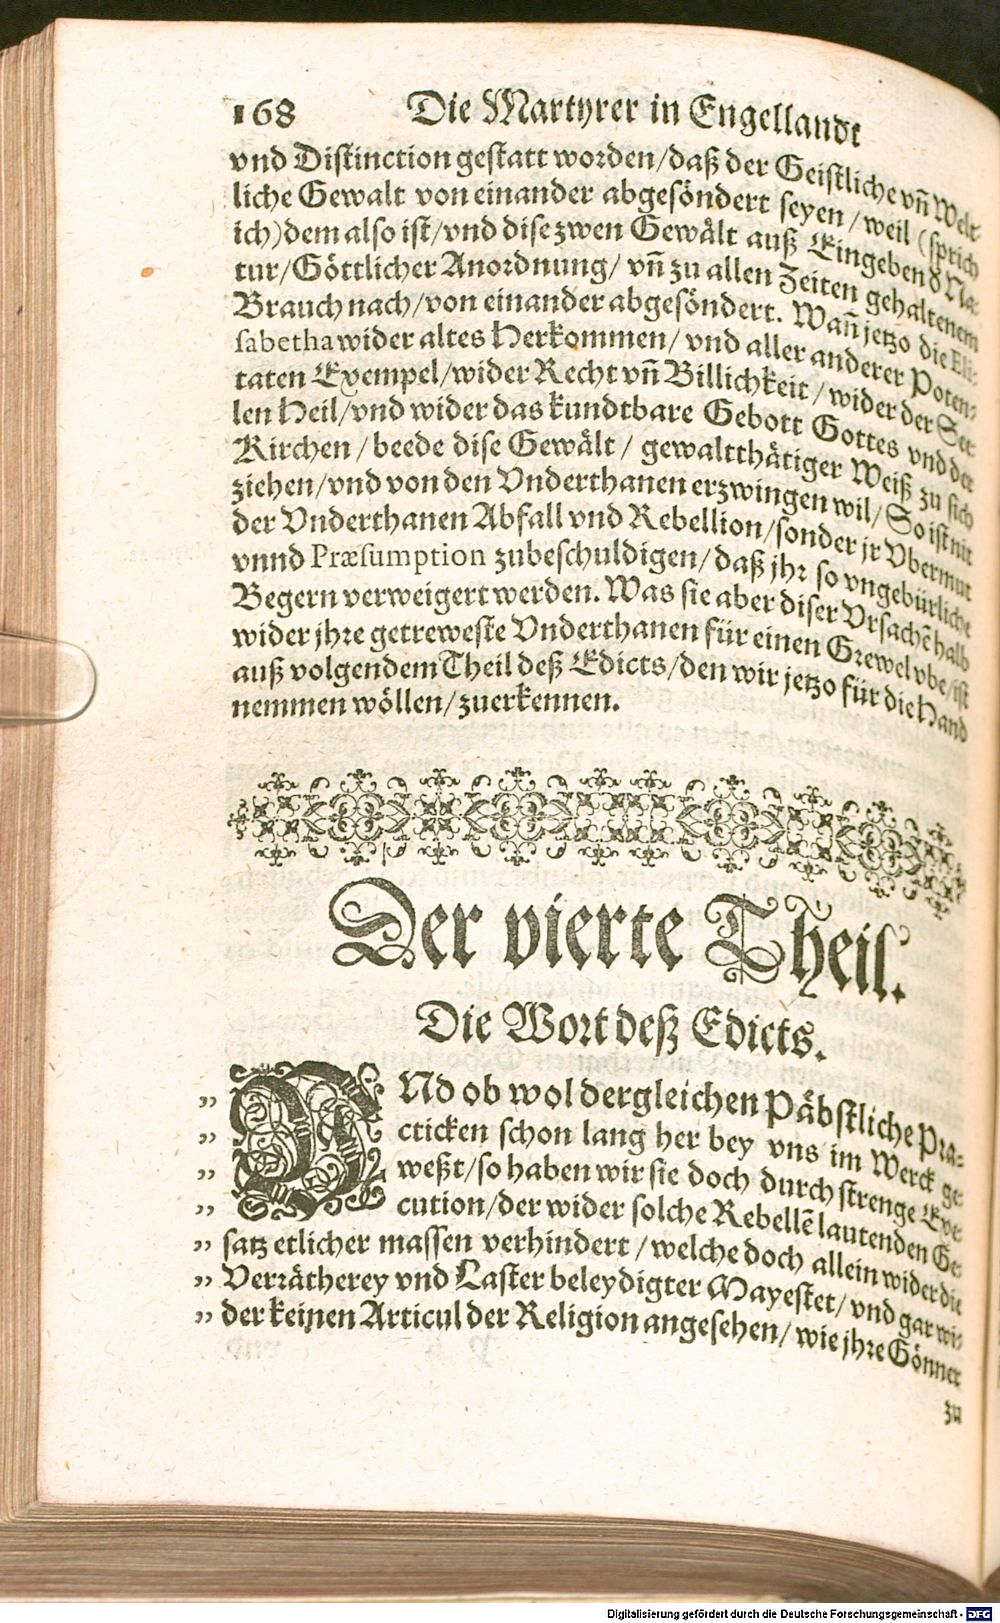 168 Die Martyrer in Engellandt
vnd Distinction gestatt worden/daß der Geistliche vñ Welt-
liche Gewalt von einander abgesöndert seyen/weil (sprich
ich)dem also ist/vnd dise zwen Gewält auß Eingeben d' Na-
tur/Göttlicher Anordnung/ vñ zu allen Zeiten gehaltenem
Brauch nach/von einander abgesöndert. Wañ jetzo die Eli-
sabetha wider altes Herkommen/ vnd aller anderer Poten-
taten Exempel/wider Recht vñ Billichkeit/wider der See-
len Heil/vnd wider das kundtbare Gebott Gottes vnd der
Kirchen/beede dise Gewält/ gewaltthätiger Weiß zu sich
ziehen/vnd von den Vnderthanen erzwingen wil/ So ist nit
der Vnderthanen Abfall vnd Rebellion/sonder jr Vbermut
vnnd Præsumption zubeschuldigen/daß jhr so vngebürliche
Begern verweigert werden. Was sie aber diser Vrsachē halb
wider jhre getreweste Vnderthanen für einen Grewel vbe/ist
auß volgendem Theil deß Edicts/den wir jetzo für die Hand
nemmen wöllen/zuerkennen.
Der vierte Theil.
Die Wort deß Edicts.
„ VNd ob wol dergleichen Päbstliche Pra-
„ cticken schon lang her bey vns im Werck ge-
„ weßt/so haben wir sie doch durch strenge Exe-
„ cution/der wider solche Rebellē lautenden Ge-
„ satz etlicher massen verhindert/welche doch allein wider die
„ Verrätherey vnd Laster beleydigter Mayestet/vnd gar wi-
„ der keinen Articul der Religion angesehen/wie jhre Gönner
zu
Digitalisierung gefördert durch die Deutsche Forschungsgemeinschaft - DFG